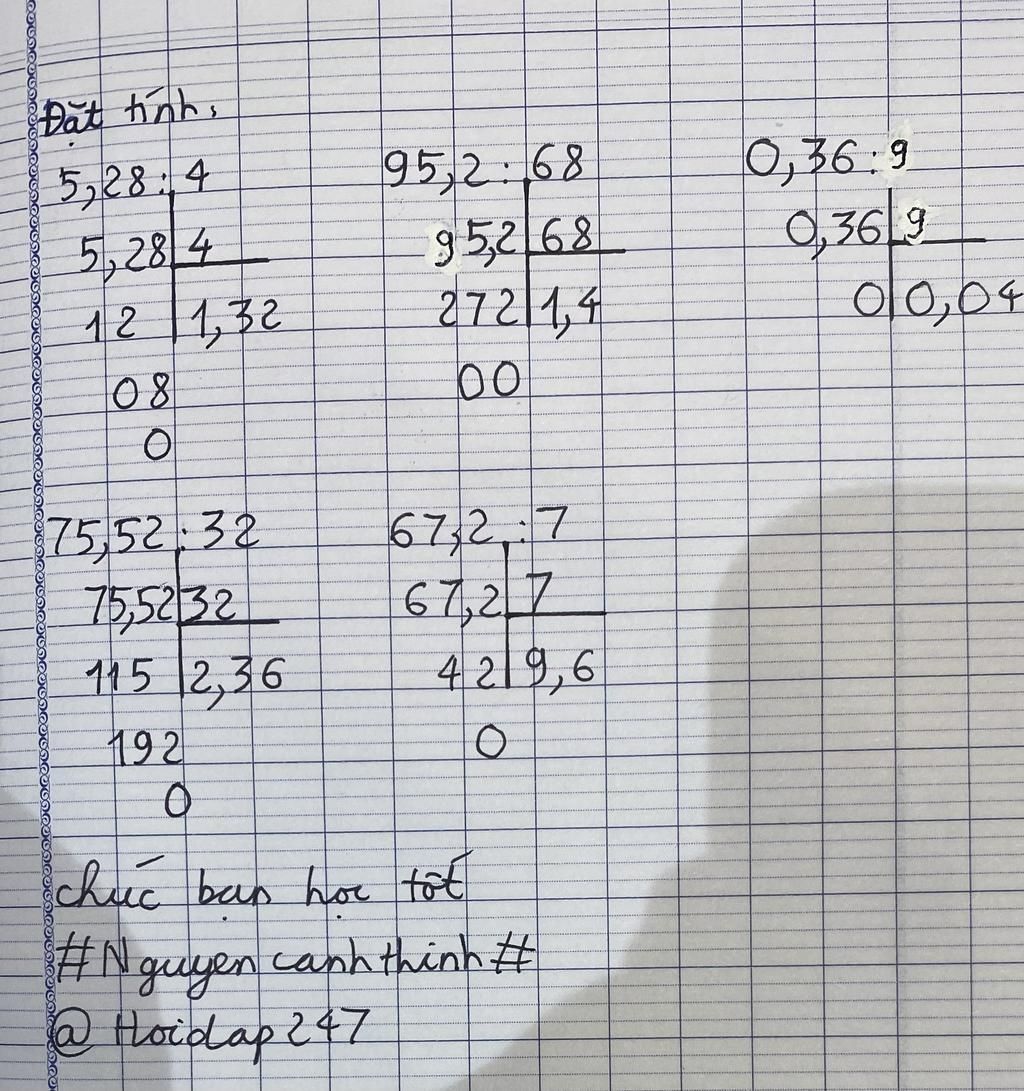 Đặt tính,
5,28 : 4
5,28 4
12 1,32
08
0
95,2 : 68
95,2 68
272 1,4
00
0,36 : 9
0,36 9
0 0,04
75,52 : 32
75,52 32
115 2,36
192
0
67,2 : 7
67,2 7
42 9,6
0
chúc bạn học tốt
#Nguyencanhthinh#
@Hoidap247